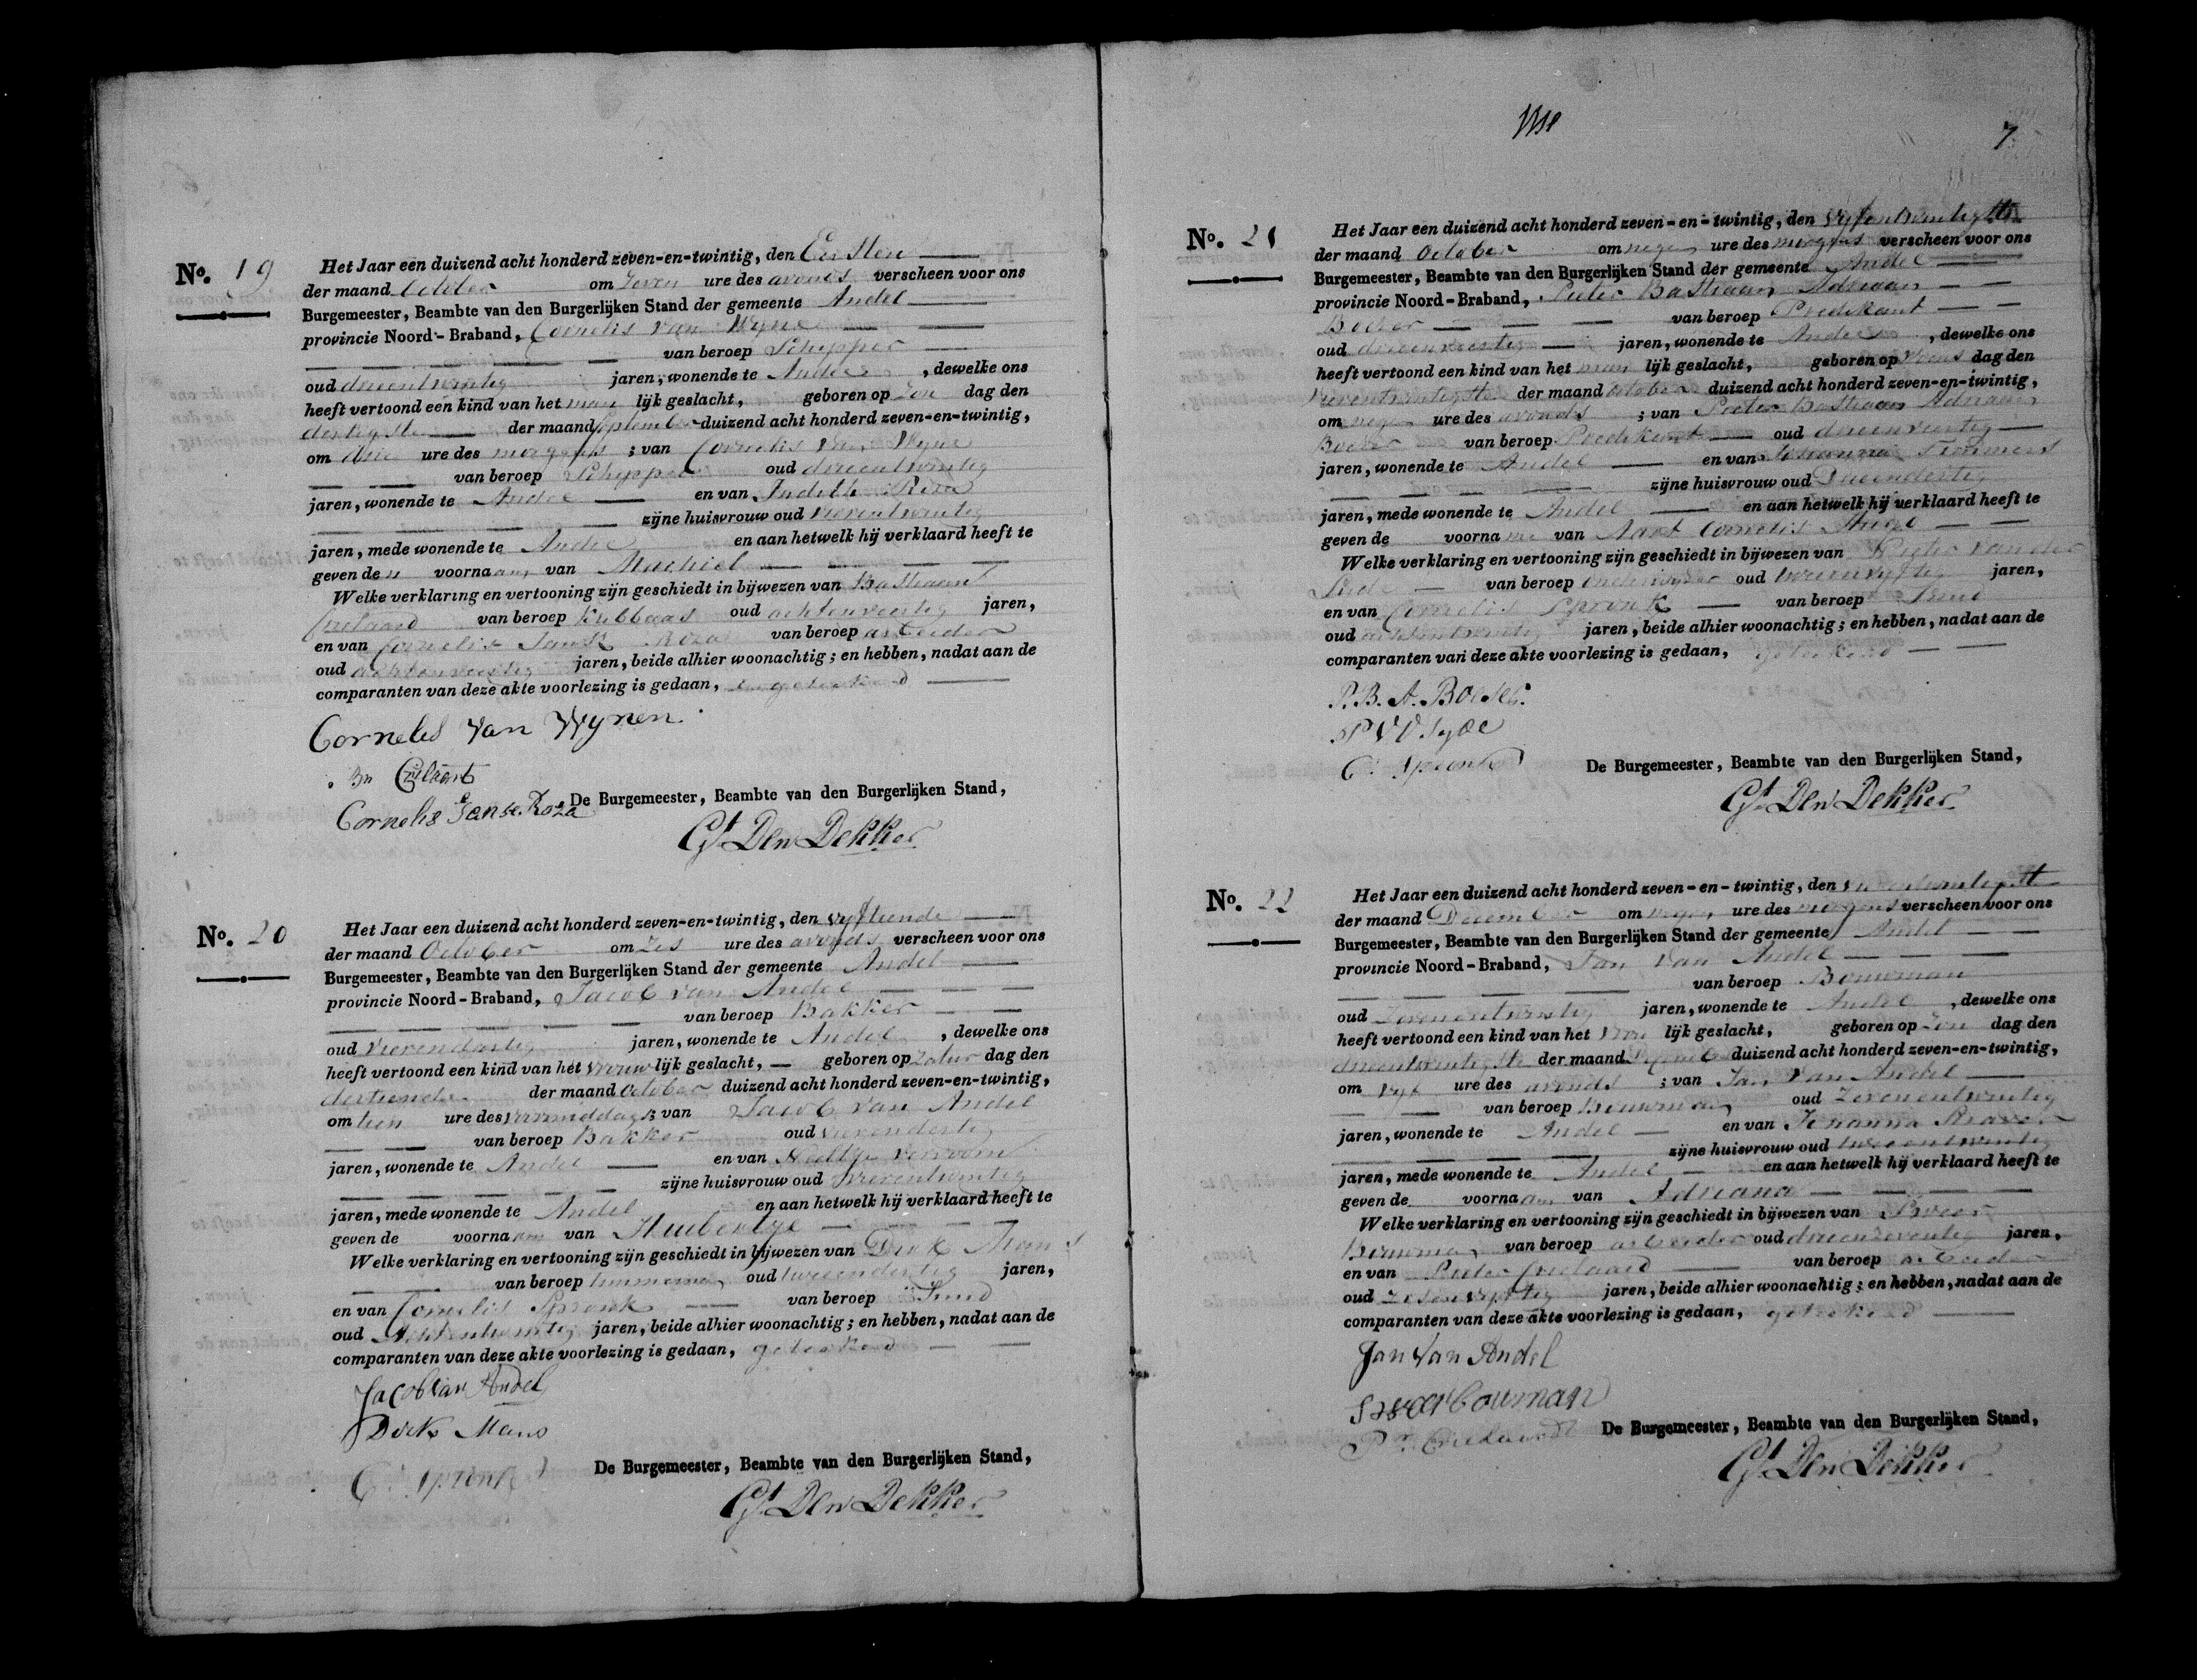 No. 19
Het Jaar een duizend acht honderd zeven-en-twintig, den Eersten
der maand October om Zeven ure des avonds verscheen voor ons
Burgemeester, Beambte van den Burgerlijken Stand der gemeente Andel
provincie Noord-Braband, Cornelis van Wynen
van beroep Schipper
oud drieentwintig jaren, wonende te Andel, dewelke ons
heeft vertoond een kind van het man lijk geslacht, geboren op Zon dag den
dertigste der maand September duizend acht honderd zeven-en-twintig,
om drie ure des morgens; van Cornelis van Wynen
van beroep Schipper oud drieentwintig
jaren, wonende te Andel en van Judith Roza
zijne huisvrouw oud vierentwintig
jaren, mede wonende te Andel en aan hetwelk hij verklaard heeft te
geven den voornaam van Machiel
Welke verklaring en vertooning zijn geschiedt in bijwezen van Bastiaan
Crielaard van beroep Kribbaas oud achtenveertig jaren,
en van Cornelis Janse Roza van beroep arbeider
oud achtenveertig jaren, beide alhier woonachtig; en hebben, nadat aan de
comparanten van deze akte voorlezing is gedaan, geteekend
Cornelis van Wynen.
Bn Crielaart
Cornelis Janse Roza
De Burgemeester, Beambte van den Burgerlijken Stand,
Gt. Den Dekker
No. 20
Het Jaar een duizend acht honderd zeven-en-twintig, den vyftiende
der maand October om Zes ure des avonds verscheen voor ons
Burgemeester, Beambte van den Burgerlijken Stand der gemeente Andel
provincie Noord-Braband, Jacob van Andel
van beroep Bakker
oud vierendertig jaren, wonende te Andel, dewelke ons
heeft vertoond een kind van het vrouw lijk geslacht, geboren op Zatur dag den
dertiende der maand October duizend acht honderd zeven-en-twintig,
om tien ure des voormiddags; van Jacob van Andel
van beroep Bakker oud vierendertig
jaren, wonende te Andel en van Neeltje Vervoorn
zijne huisvrouw oud
jaren, mede wonende te Andel en aan hetwelk hij verklaard heeft te
geven de voornaam van Huibertje
Welke verklaring en vertooning zijn geschiedt in bijwezen van Dirk Mans
van beroep timmerman oud tweendertig jaren,
en van Cornelis Spronk van beroep Smid
oud Achtentwintig jaren, beide alhier woonachtig; en hebben, nadat aan de
comparanten van deze akte voorlezing is gedaan, geteekend
Jacob van Andel
Dirk Mans
C. Spronk
De Burgemeester, Beambte van den Burgerlijken Stand,
Gt. Den Dekker
7
No. 21
Het Jaar een duizend acht honderd zeven-en-twintig, den vyfentwintigste
der maand October om negen ure des morgens verscheen voor ons
Burgemeester, Beambte van den Burgerlijken Stand der gemeente Andel
provincie Noord-Braband, Pieter Bastiaan Adriaan
Boeser van beroep Predikant
oud drieenveertig jaren, wonende te Andel, dewelke ons
heeft vertoond een kind van het man lijk geslacht, geboren op Woens dag den
vierentwintigste der maand October duizend acht honderd zeven-en-twintig,
om negen ure des avonds; van Pieter Bastiaan Adriaan
Boeser van beroep Predikant oud drieenveertig
jaren, wonende te Andel en van Johanna Timmers
zijne huisvrouw oud Drieendertig
jaren, mede wonende te Andel en aan hetwelk hij verklaard heeft te
geven de voorna me van Aart Cornelis
Welke verklaring en vertooning zijn geschiedt in bijwezen van Pieter van der
van beroep Onderwyzer oud tweeenvyftig jaren,
en van Cornelis Spronk van beroep Smid
oud achtentwintig jaren, beide alhier woonachtig; en hebben, nadat aan de
comparanten van deze akte voorlezing is gedaan, geteekend
P. B. A. Boeser.
C. Spronk
De Burgemeester, Beambte van den Burgerlijken Stand,
Gt. Den Dekker
No. 22
Het Jaar een duizend acht honderd zeven-en-twintig, den vierentwintigste
der maand December om negen ure des morgens verscheen voor ons
Burgemeester, Beambte van den Burgerlijken Stand der gemeente Andel
provincie Noord-Braband, Jan van Andel
van beroep Bouwman
oud Zevenentwintig jaren, wonende te Andel, dewelke ons
heeft vertoond een kind van het vrou lijk geslacht, geboren op Zon dag den
drieentwintigste der maand December duizend acht honderd zeven-en-twintig,
om vyf ure des avonds; van Jan van Andel
van beroep Bouwman oud Zevenentwintig
jaren, wonende te Andel en van Johanna
zijne huisvrouw oud tweeentwintig
jaren, mede wonende te Andel en aan hetwelk hij verklaard heeft te
geven de voornaam van Adriana
Welke verklaring en vertooning zijn geschiedt in bijwezen van
Bouwman van beroep arbeider oud drieenzeventig jaren,
en van Pieter Crielaard van beroep arbeider
oud Zesenvyftig jaren, beide alhier woonachtig; en hebben, nadat aan de
comparanten van deze akte voorlezing is gedaan, geteekend
Jan van Andel
bouman
Pr. Crielaard
De Burgemeester, Beambte van den Burgerlijken Stand,
Gt. Den Dekker